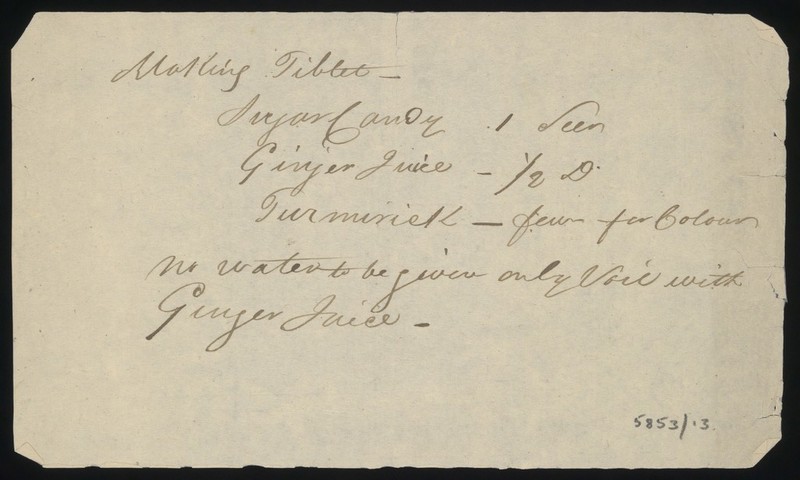 Making Tiblet -
Sugar Candy . 1 Seer
Ginjer Juice - 1/2 D.
Turmirick - few for Colour
no water to be given only Voil with
Ginjer Juice -
5853/13.